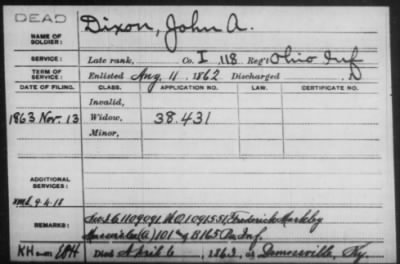 DEAD
NAME OF SOLDIER: Dixon, John A.
SERVICE: Late rank, Co. I, 118 Reg't Ohio Inf
TERM OF SERVICE: Enlisted Aug. 11, 1862 Discharged
DATE OF FILING. CLASS. APPLICATION NO. LAW. CERTIFICATE NO.
Invalid,
1863 Nov. 13 Widow, 38.431
Minor,
ADDITIONAL SERVICES:
9-4-18
REMARKS: 1109091 1091551 Frederick Markley
101 B 165 Pa Inf.
Died April 6, 1863, in Ky.